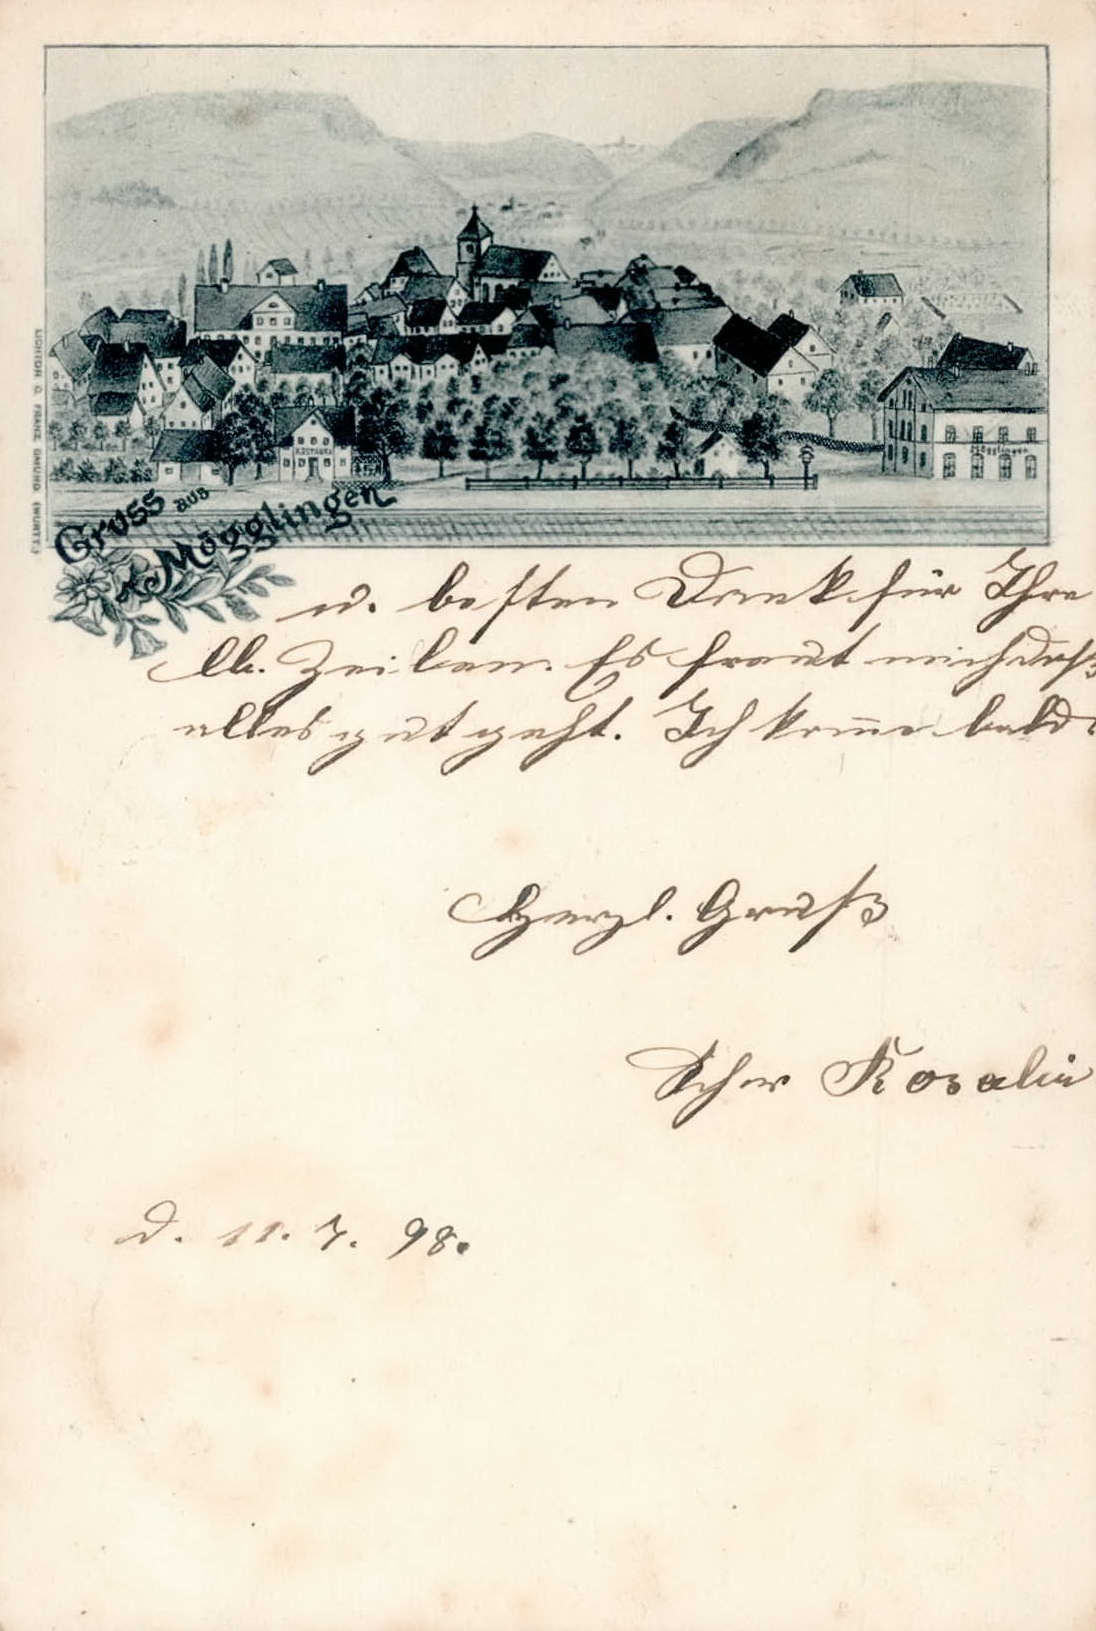 Gruss aus
Mögglingen
RESTAURA
Mögglingen
LICHTDR. G. FRANZ, GMÜND (WÜRTT.)
u. besten Dank für Ihre
lb. Zeilen. Es freut mich daß
alles gut geht. Ich kom̄e bald
Herzl. Gruß
Rosalie
d. 11. 7. 98.